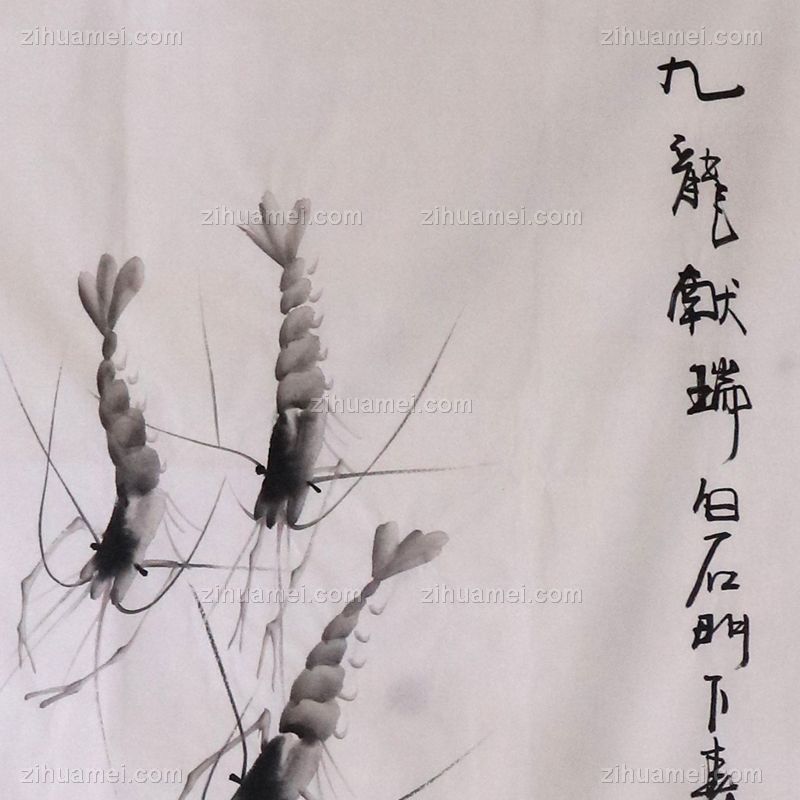 九龍獻瑞白石門下
zihuamei.com zihuamei.com
zihuamei.com zihuamei.com
zihuamei.com
zihuamei.com zihuamei.com
zihuamei.com zihuamei.com